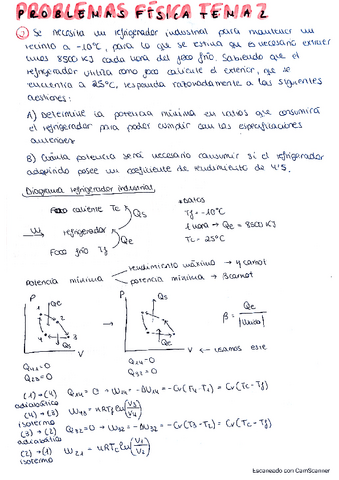 PROBLEMAS FÍSICA TEMA 2
Se necesita un refrigerador industrial para mantener un
recinto a -10°C, para lo que se estima que es necesario extraer
unos 8500 KJ cada hora del foco frío. Sabiendo que el
refrigerador utiliza como foco caliente el exterior, que se
encuentra a 25°C, responda razonadamente a las siguientes
cuestiones:
A) Determine la potencia mínima en vatios que consumirá
el refrigerador para poder cumplir con las especificaciones
anteriores
B) Cuánta potencia será necesario consumir si el refrigerador
adquirido posee un coeficiente de rendimiento de 4'5.
Diagrama refrigerador industrial
Foco caliente Tc Qs
W refrigerador
Qe
Foco frío Tf
DATOS
Tf = -10°C
1 hora → Qe = 8500 KJ
Tc = 25°C
Potencia mínima
rendimiento máximo → η carnot
potencia mínima → β carnot
P Qe 1 2 4 3 Qs V
→
P Qs Qe V
β = Qe / |Wciclo|
← usamos este
Q41=0
Q23=0
Q14=0
Q32=0
(1)→(4) adiabático Q14 = 0 → W14 = -ΔU14 = -Cv(T4-T1) = Cv(Tc-Tf)
(4)→(3) isotermo W43 = nRTf ln(V3/V4)
(3)→(2) adiabático Q32=0 → W32 = -ΔU32 = -Cv(T2-T3) = Cv(Tf-Tc)
(2)→(1) isotermo W21 = nRTc ln(V1/V2)
Escaneado con CamScanner